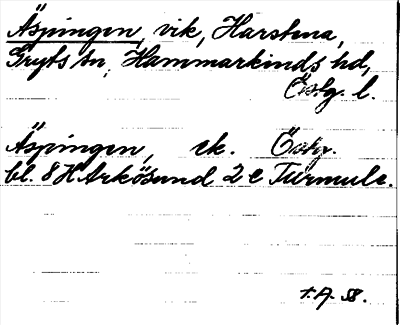 Äspingen, vik, Harstena,
Gryts sn, Hammarkinds hd,
Östg. l.
Äspingen, ek. Östg.
bl. 8 H Arkösund 2 e Turmule.
t. A. 58.